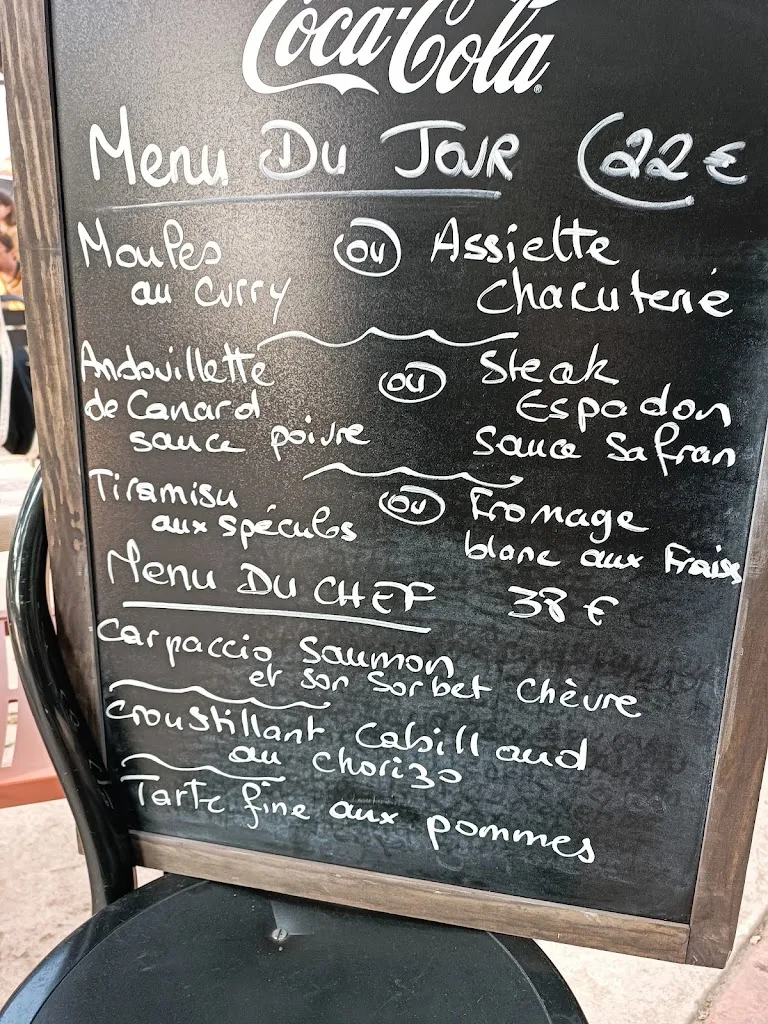 Coca-Cola
Menu Du Jour (22 €
Moules ou Assiette
au curry Chacuterie
Andouillette ou Steak
de Canard Espadon
sauce poivre sauce safran
Tiramisu ou Fromage
aux spéculos blanc aux Frais
Menu Du CHEF 38 €
Carpaccio Saumon
et son Sorbet Chèvre
Croustillant Cabillaud
au chorizo
Tarte fine aux pommes